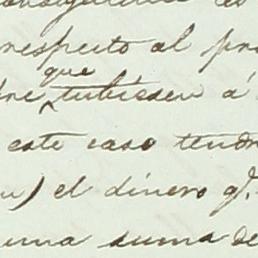 respecto al pre
que
tubiesen á
este caso tendr
) el dinero q.
una suma de